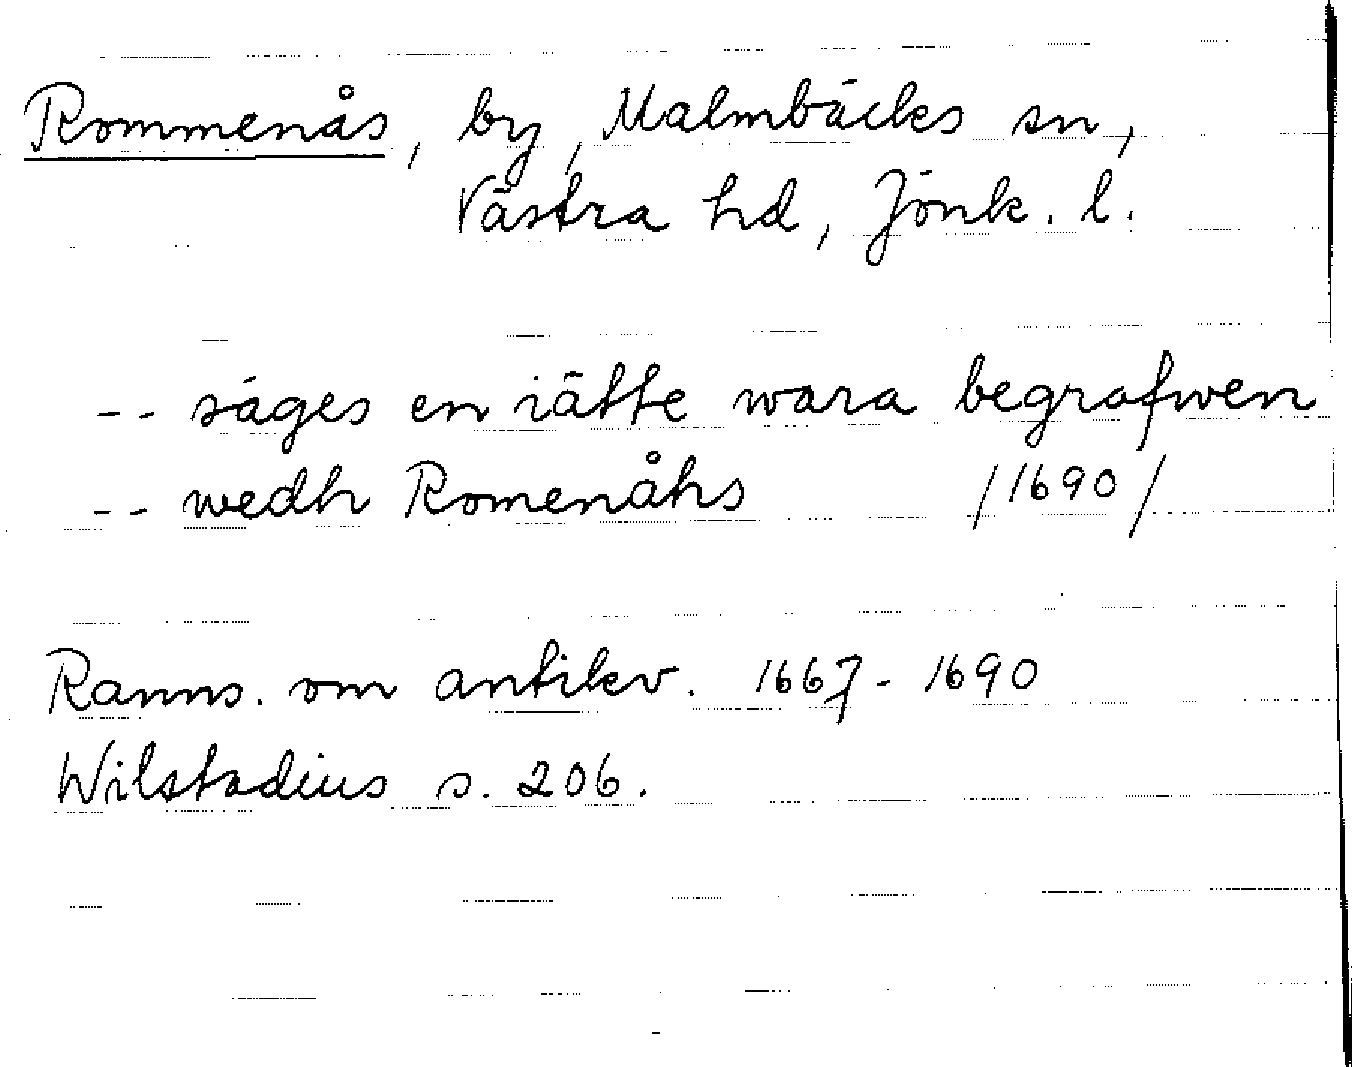 Rommenås, by, Malmbäcks sn,
Västra hd, Jönk. l.
-- säges en iätte wara begrafwen
-- wedh Romenåhs /1690/
Ranns. om antikv. 1667-1690
Wilstadius s. 206.